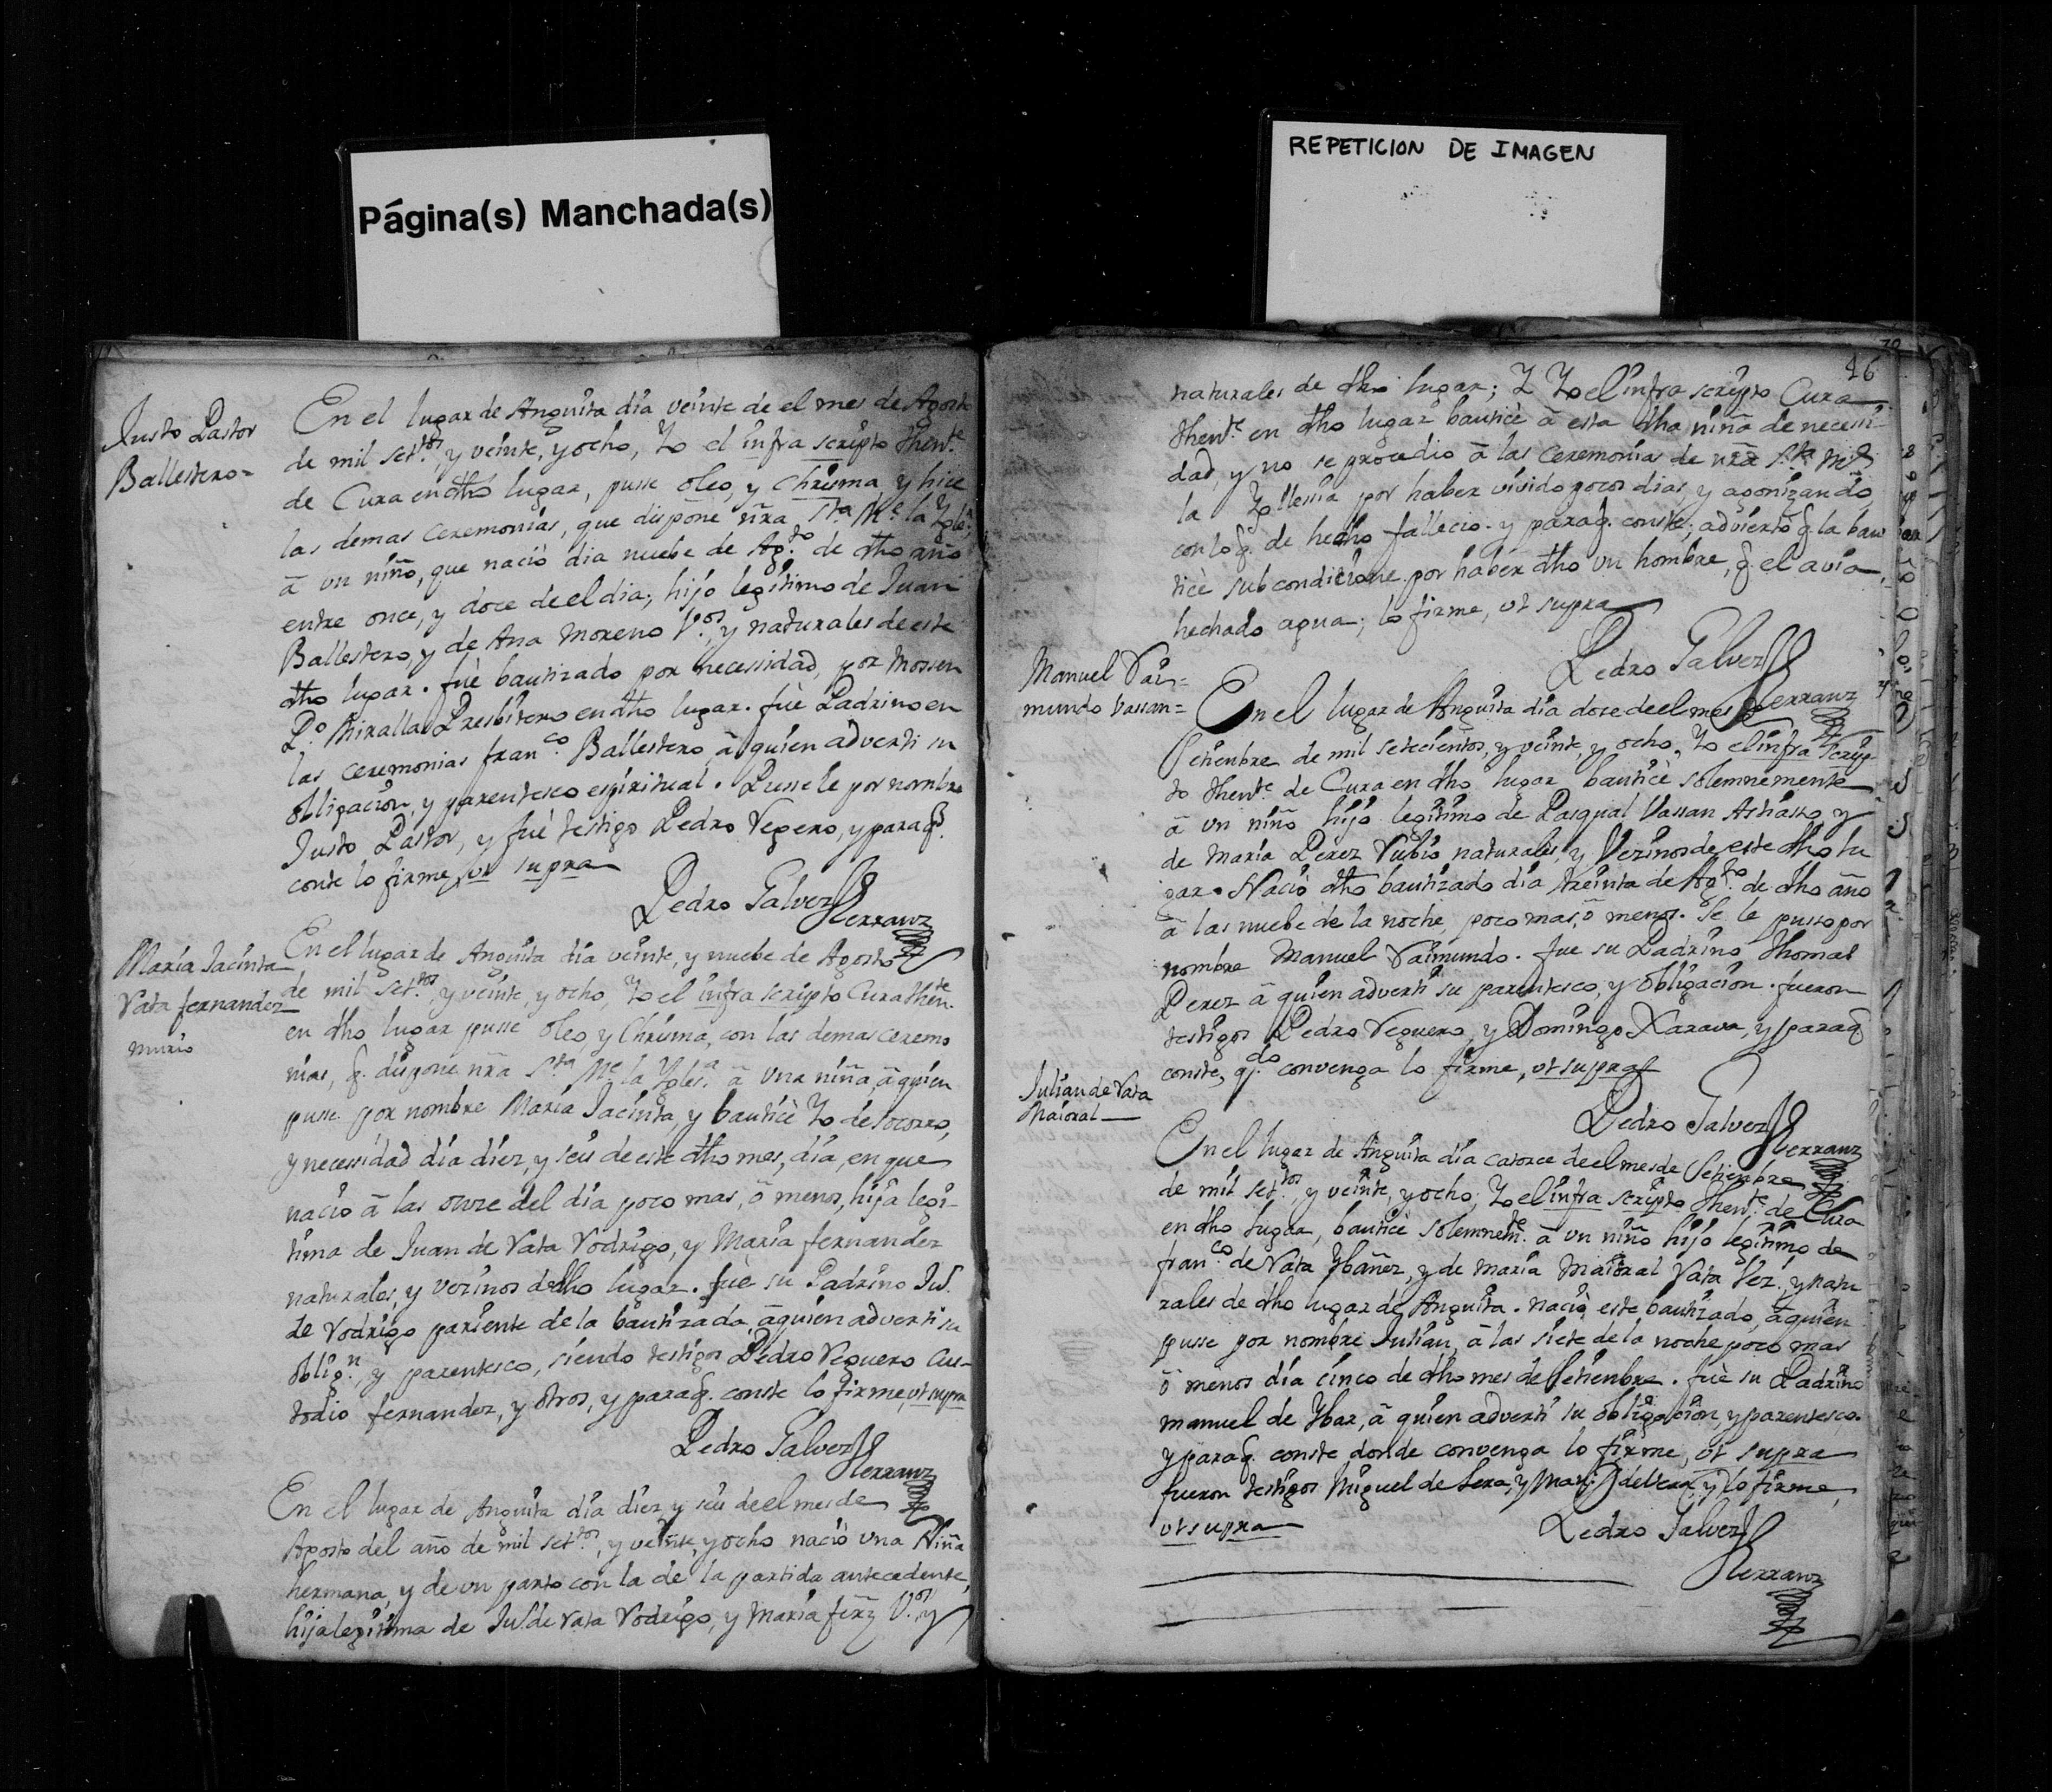 Página(s) Manchada(s)
REPETICION DE IMAGEN
Justo Pastor
Ballestero=
En el lugar de Anguita dia veinte de el mes de Agosto
de mil set.tos y veinte, y ocho, Yo el infra scripto Thent.e
de Cura en dho lugar, pusse oleo, y Chrisma y hice
las demas ceremonias, que dispone nra Sta. Me. la Ygla.
à un niño, que naciò dia nuebe de Ag.to de dho año
entre once, y doce de el dia; hijo legitimo de Juan
Ballestero, y de Ana Moreno V.os, y naturales de este
dho lugar. fuè bautizado por necessidad, por Mossen
P.o Miralla Presbitero en dho lugar. fuè Padrino en
las ceremonias fran.co Ballestero, à quien adverti su
obligacion, y parentesco espiritual. Pussele por nombre
Justo Pastor, y fuè testigo Pedro Veguero, y para q.
conste lo firme, ut supra
Pedro Galvez
Herranz
Maria Jacinta
Rata fernandez
murio
En el lugar de Anguita dia veinte, y nuebe de Agosto
de mil set.tos y veinte, y ocho, Yo el infra scripto Cura thente.
en dho lugar pusse oleo y Chrisma, con las demas ceremo
nias, q. dispone nra S.ta Me la Ygles.a à una niña, à quien
pusse por nombre Maria Jacinta, y bauticè Yo de socorro,
y necessidad dia diez, y seis de este dho mes, dia, en que
naciò à las onze del dia poco mas, ò menos, hija legi-
tima de Juan de Rata Rodrigo, y Maria fernandez
naturales, y vezinos de dho lugar. fuè su Padrino Ju.
de Rodrigo pariente de la bautizada, à quien adverti su
oblig.n y parentesco, siendo testigos Pedro Veguero Cus-
todio fernandez, y otros, y para q. conste lo firme, ut supra
Pedro Galvez
Herranz
En el lugar de Anguita dia diez y seis de el mes de
Agosto del año de mil set.tos, y veinte, y ocho naciò una Niña
hermana, y de un parto con la de la partida antecedente,
hija legitima de Ju. de Rata Rodrigo, y Maria frnz V.os, y
46
naturales de dho lugar; Y Yo el infra scripto Cura
thent.e en dho lugar bauticè à esta dha niña de necessi-
dad, y no se procedio à las ceremonias de nra S.ta Me
la Yglessia por haber vivido pocos dias, y agonizando
con lo q. de hecho fallecio. y para q. conste, advierto q. la bau
ticè subcondicione por haber dho un hombre, q. el avia
hechado agua; lo firme, ut supra
Pedro Galvez
Herranz
Manuel Rai=
mundo Vassan=
En el lugar de Anguita dia doce de el mes de
Setienbre de mil setecientos, y veinte, y ocho, Yo el infra scrip-
to thent.e de Cura en dho lugar bauticè solemnemente
à un niño hijo legitimo de Pasqual Vassan Astiasso, y
de Maria Perez Rubio naturales, y Vezinos de este dho lu
gar. Naciò dho bautizado dia treinta de Ag.to de dho año
à las nuebe de la noche, poco mas, ò menos. Se le pusso por
nombre Manuel Raimundo. fue su Padrino Thomas
Perez à quien adverti su parentesco, y obligacion. fueron
testigos Pedro Veguero, y Domingo Xarava, y para q
conste, q.do convenga lo firme, ut supra
Pedro Galvez
Herranz
Julian de Rata
Maioral
En el lugar de Anguita dia catorce de el mes de Setienbre
de mil set.tos, y veinte, y ocho, Yo el infra scripto Thent.e de Cura
en dho lugar, bauticè solemnem.te à un niño hijo legitimo de
fran.co de Rata Ybañez, y de Maria Maioral Rata Vez. y natu
rales de dho lugar de Anguita. naciò este bautizado, à quien
pusse por nombre Julian, à las siete de la noche poco mas
ò menos dia cinco de dho mes de Setienbre. fuè su Padrino
Manuel de Ybar, à quien adverti su obligacion, y parentesco.
y para q. conste donde convenga lo firme, ut supra
fueron testigos Miguel de Lera, y de Vera, y lo firme,
ut supra
Pedro Galvez
Herranz